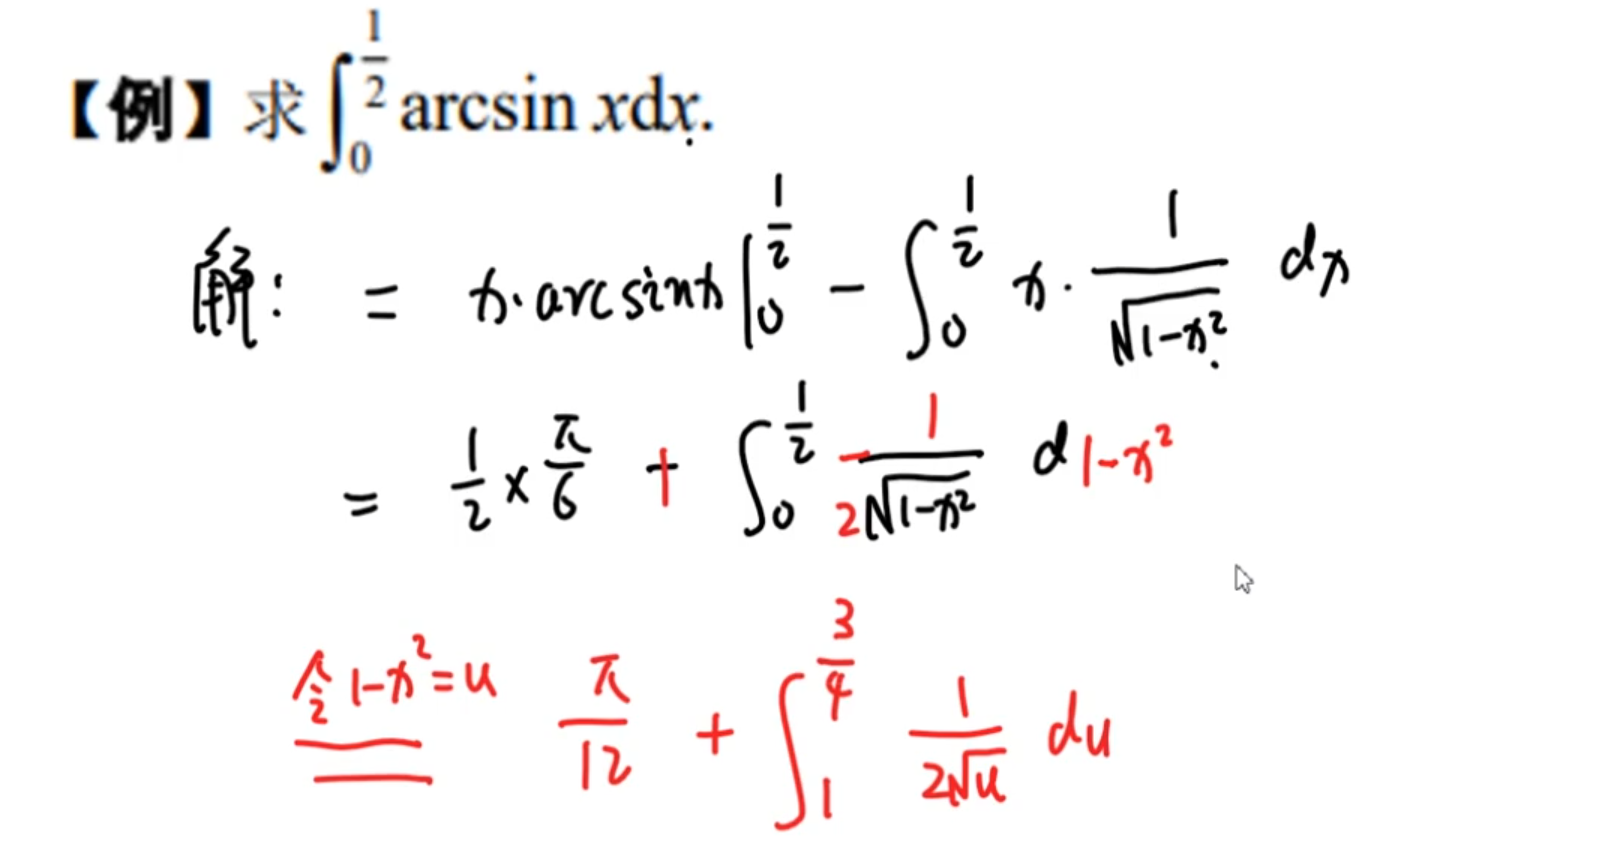 【例】求 ∫₀^{1/2} arcsin xdx.
解: = x·arcsinx |₀^{1/2} − ∫₀^{1/2} x· 1/√(1−x²) dx
= 1/2 × π/6 + ∫₀^{1/2} 1/(2√(1−x²)) d 1−x²
令 1−x²=u π/12 + ∫₁^{3/4} 1/(2√u) du